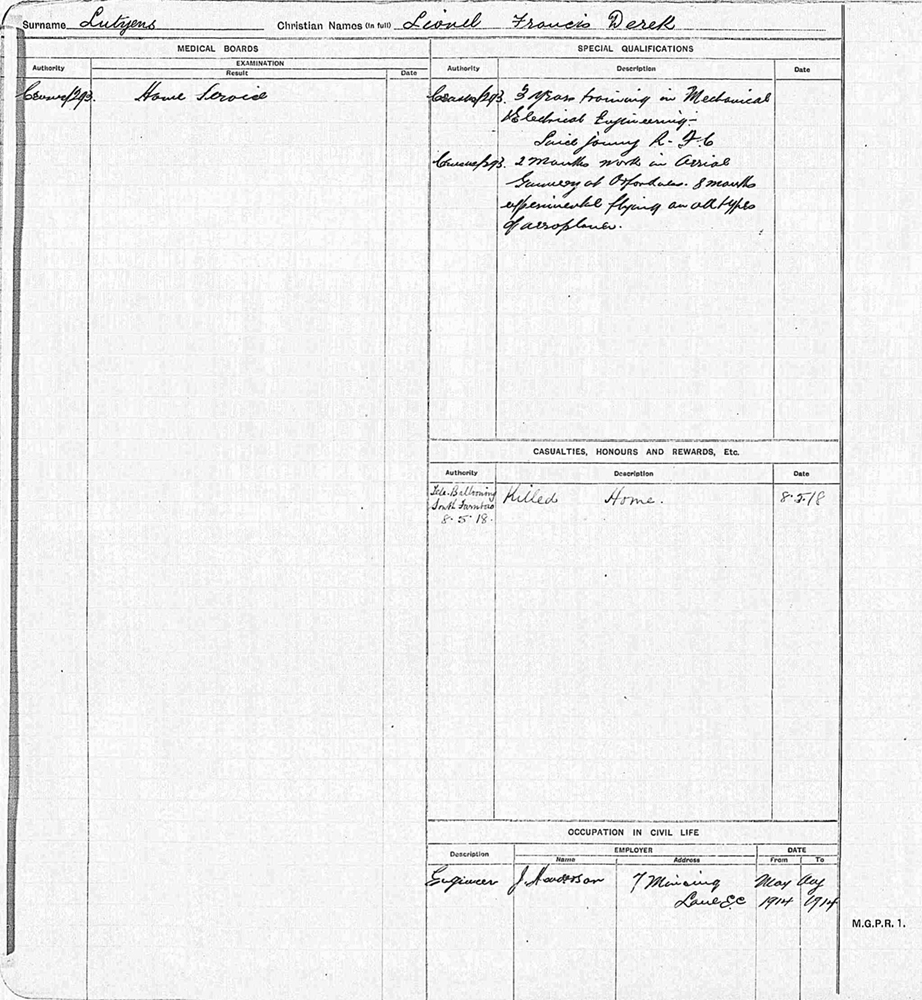 Surname Lutyens Christian Names (in full) Lionel Francis Derek
MEDICAL BOARDS
Authority EXAMINATION Date
Result
Census/293. Home Service
SPECIAL QUALIFICATIONS
Authority Description Date
Census/293. 3 years training in Mechanical
& Electrical Engineering-
Since joining R. F. C
Census/293. 2 months work in Aerial
Gunnery at Orfordness. 8 months
experimental flying on all types
of aeroplanes.
CASUALTIES, HONOURS AND REWARDS, Etc.
Authority Description Date
Tele. Ballooning Killed Home. 8.5.18
South Farnboro
8.5.18.
OCCUPATION IN CIVIL LIFE
Description EMPLOYER DATE
Name Address From To
Engineer J. 7 Mincing May Aug
Lane E.C 1914 1914
M.G.P.R. 1.